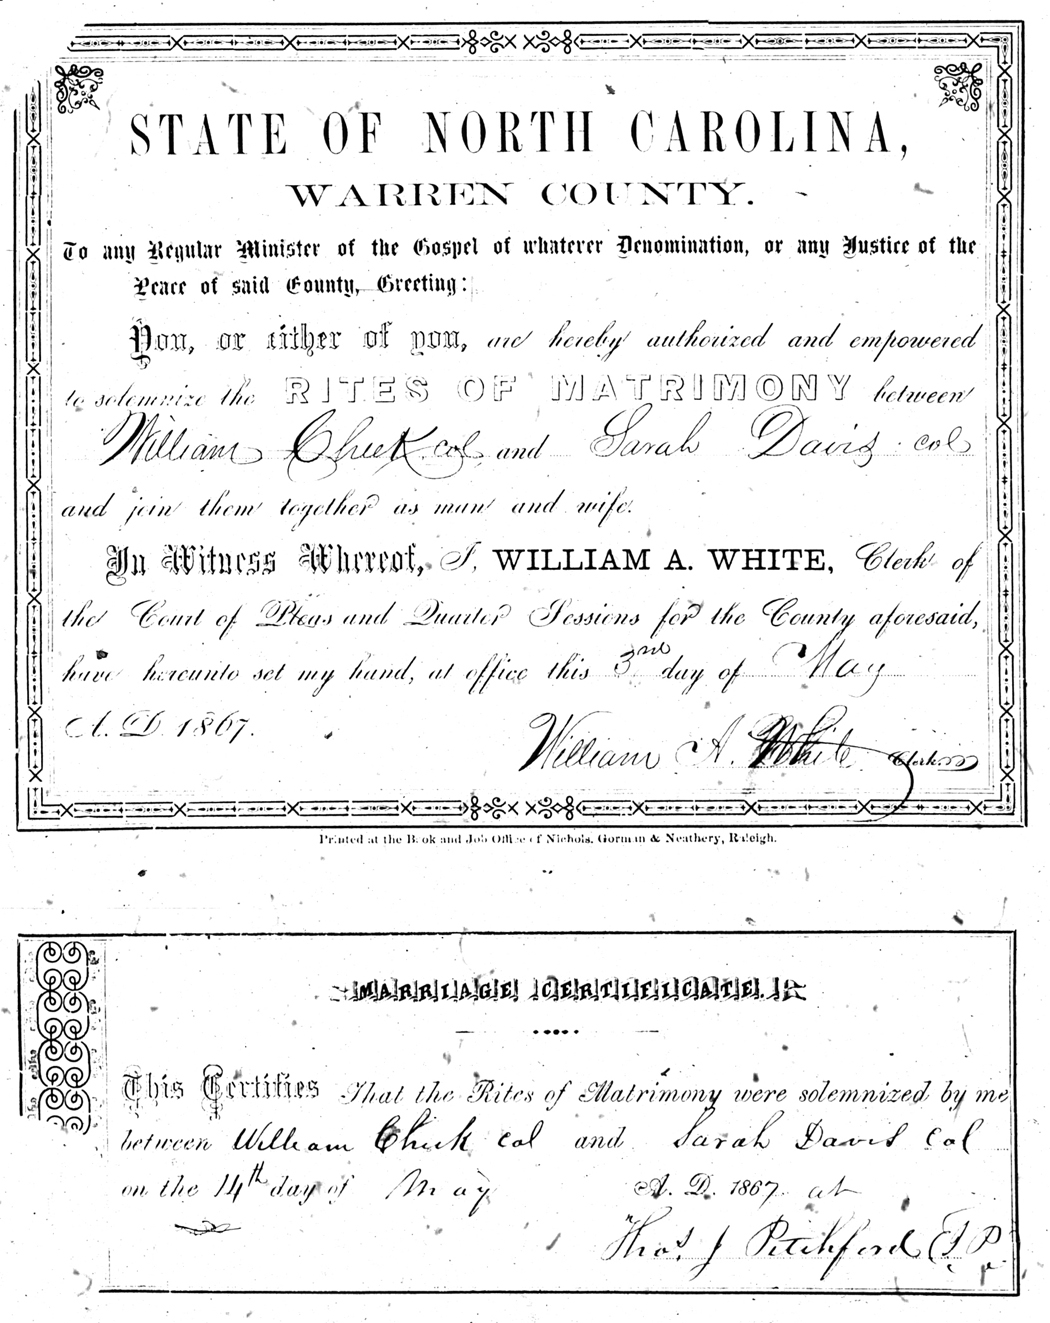 STATE OF NORTH CAROLINA,
WARREN COUNTY.
To any Regular Minister of the Gospel of whatever Denomination, or any Justice of the
Peace of said County, Greeting:
You, or either of you, are hereby authorized and empowered
to solemnize the RITES OF MATRIMONY between
William Cheek col and Sarah Davis col
and join them together as man and wife.
In Witness Whereof, I, WILLIAM A. WHITE, Clerk of
the Court of Pleas and Quarter Sessions for the County aforesaid,
have hereunto set my hand, at office this 3rd day of May
A. D. 1867.
William A. White Clerk
Printed at the Book and Job Office of Nichols, Gorman & Neathery, Raleigh.
MARRIAGE CERTIFICATE.
This Certifies That the Rites of Matrimony were solemnized by me
between William Cheek col and Sarah Davis col
on the 14th day of May A. D. 1867 at
Thos. J Pitchford J. P.